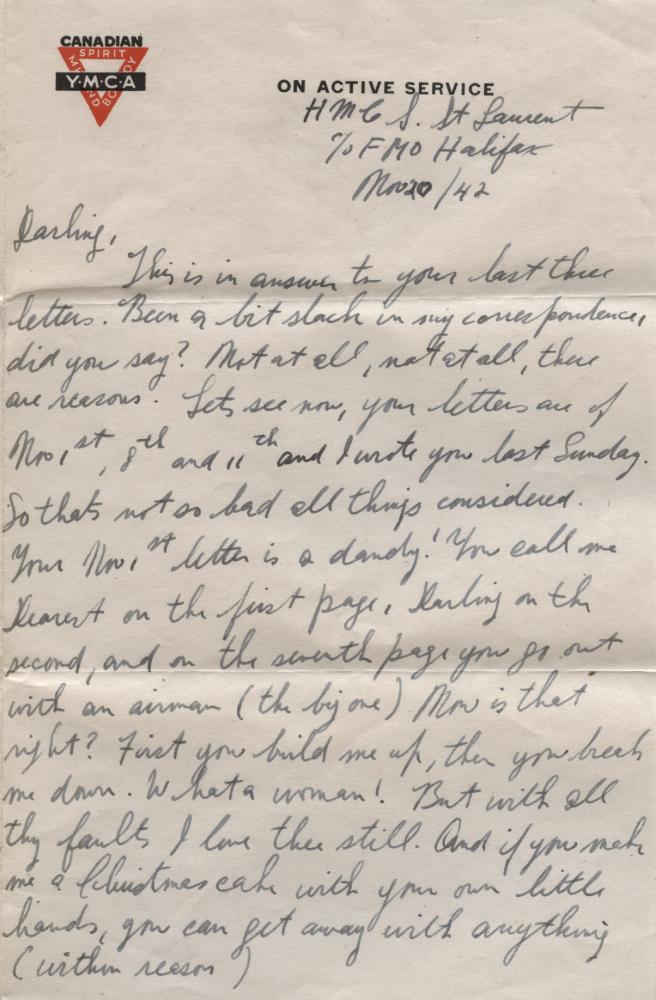 CANADIAN
SPIRIT
Y·M·C·A
MIND
BODY
ON ACTIVE SERVICE
HMCS. St Laurent
c/o FMO Halifax
Nov 20/42
Darling,
This is in answer to your last three
letters. Been a bit slack in my correspondence,
did you say? Not at all, not at all, there
are reasons. Lets see now, your letters are of
Nov 1st, 8th and 11th and I wrote you last Sunday.
So thats not so bad all things considered.
Your Nov 1st letter is a dandy! You call me
Dearest on the first page, Darling on the
second, and on the seventh page you go out
with an airman (the big one) Now is that
right? First you build me up, then you break
me down. What a woman! But with all
thy faults I love thee still. And if you make
me a Christmas cake with your own little
hands, you can get away with anything
(within reason)